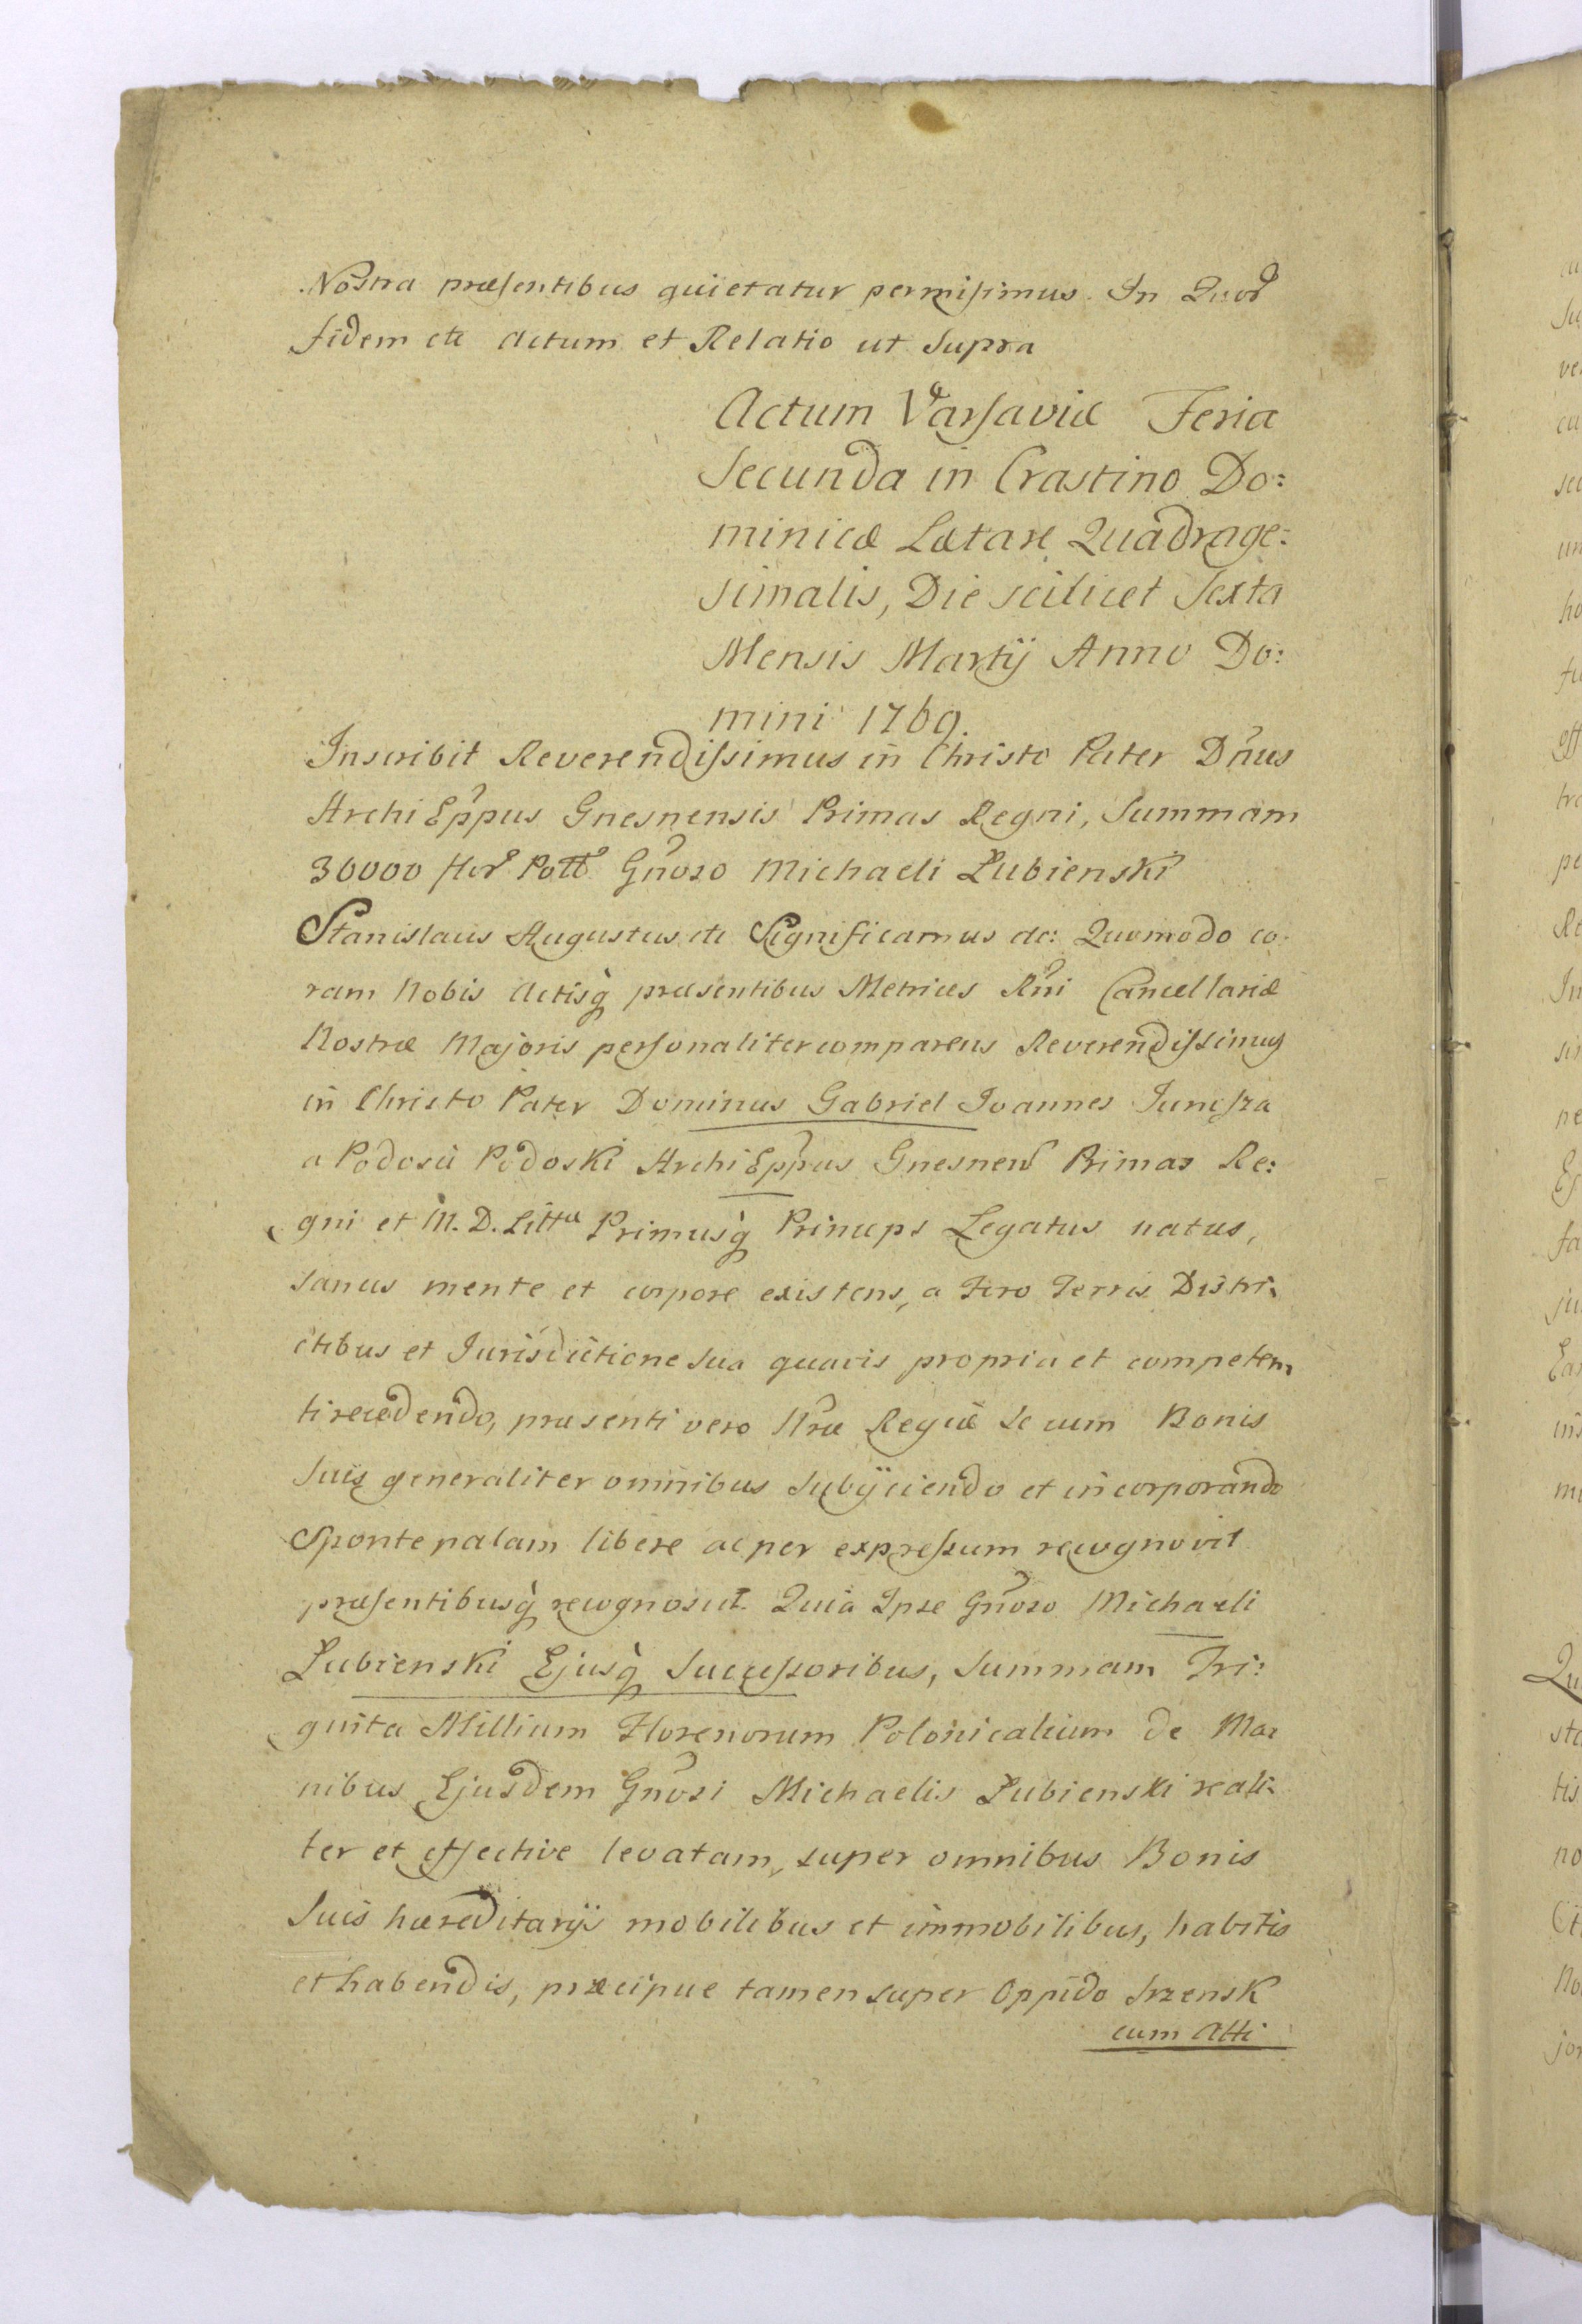 Nostra præsentibus quietatur permisimus. In Quor
fidem etc Actum et Relatio ut Supra
Actum Varsaviæ Feria
Secunda in Crastino Do:
minicæ Lætare Quadrage:
simalis, Die scilicet Sexta
Mensis Martij Anno Do:
mini 1769.
Inscribit Reverendissimus in Christo Pater Dnus
Archi Eppus Gnesnensis Primas Regni, Summam
30000 flor Poll Gnoso Michaeli Łubienski
Stanislaus Augustus etc Significamus etc: Quomodo co-
ram Nobis Actisq præsentibus Metrices Rni Cancellariæ
Nostræ Majoris personaliter comparens Reverendissimus
in Christo Pater Dominus Gabriel Joannes Junosza
a Podosii Podoski Archi Eppus Gnesnen Primas Re:
gni et M. D. Littæ Primusq Princeps Legatus natus,
sanus mente et corpore existens, a Foro Terris Distri-
ctibus et Jurisdictione sua quavis propria et competen-
ti recedendo, præsenti vero Nræ Regiæ se cum Bonis
Suis generaliter omnibus subijciendo et incorporando
Sponte palam libere ac per expressum recognovit
præsentibusq recognoscit. Quia Ipse Gnoso Michaeli
Łubienski Ejusq Successoribus, Summam Tri:
ginta Millium Florenorum Polonicalium de Ma:
nibus Ejusdem Gnosi Michaelis Łubienski reali:
ter et effective levatam, super omnibus Bonis
Suis hæreditarijs mobilibus et immobilibus, habitis
et habendis, præcipue tamen super Oppido Srzensk
cum Atti